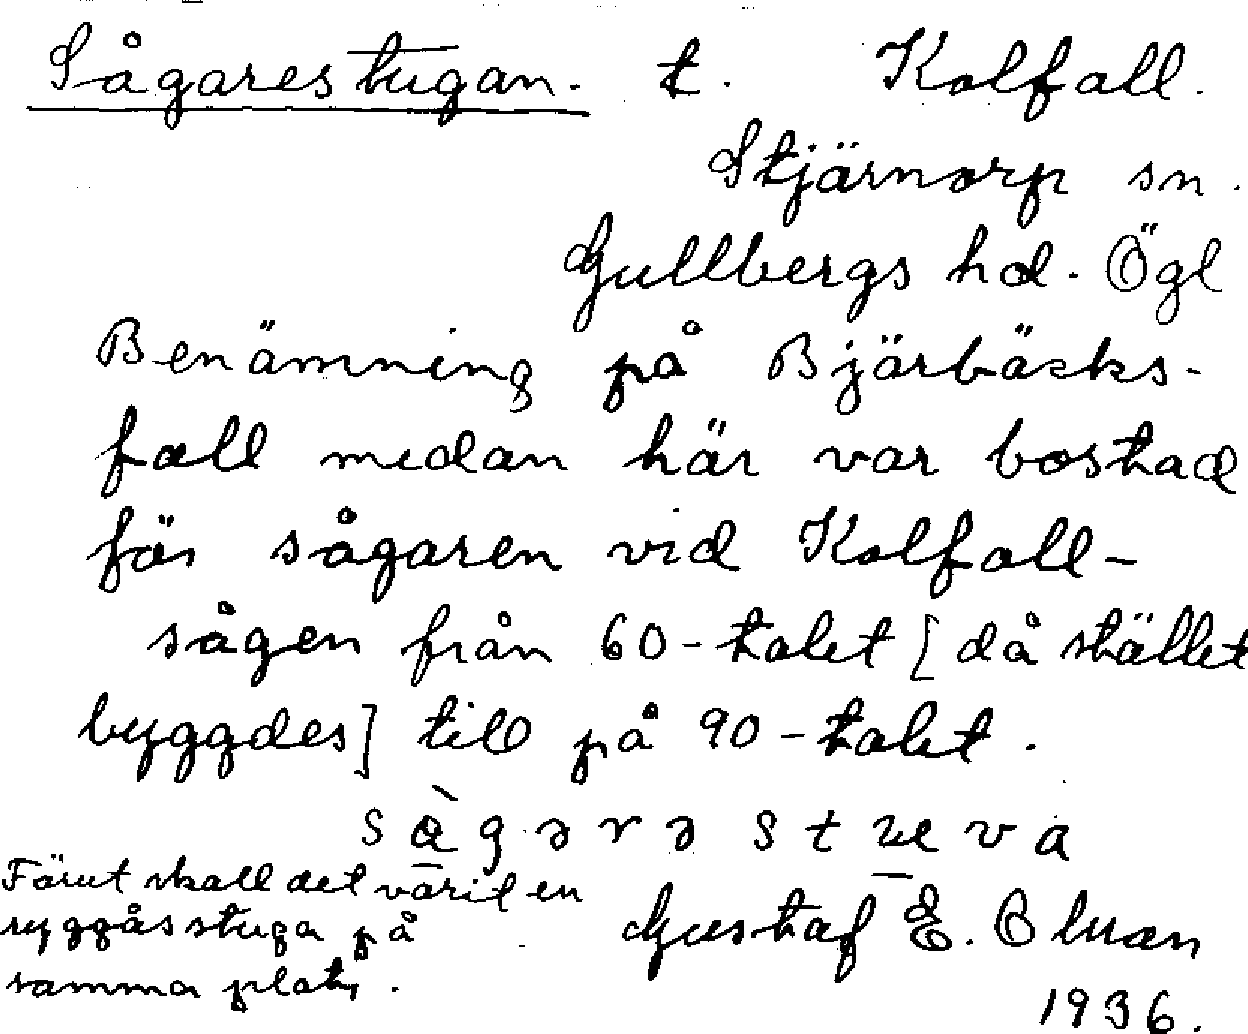 Sågarestugan. t. Kolfall.
Stjärnorp sn.
Gullbergs hd. Ögl
Benämning på Bjärbäcks-
fall medan här var bostad
för sågaren vid Kolfall-
sågen från 60-talet [då stället
byggdes] till på 90-talet.
Förut skall det varit en
ryggåsstuga på
samma plats.
Gustaf E. Olsson
1936.